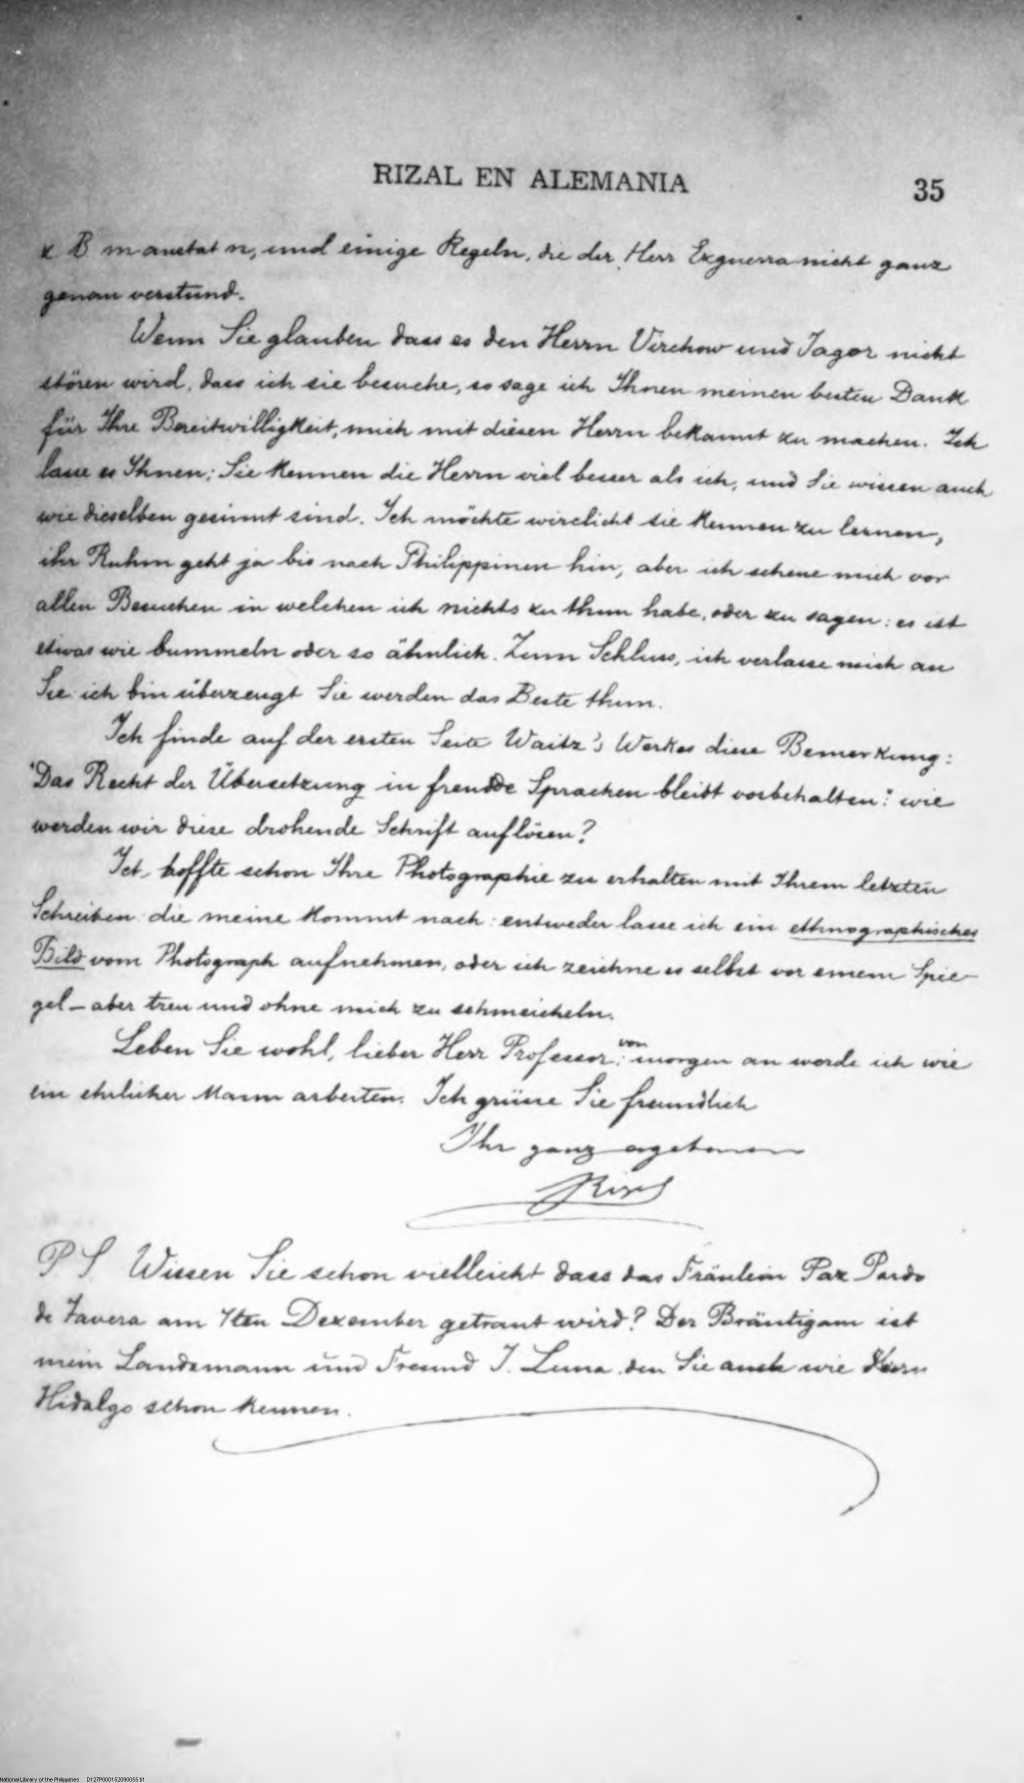 RIZAL EN ALEMANIA
35
z B m anstat n, und einige Regeln, die der Herr Ezguerra nicht ganz
genau verstund.
Wenn Sie glauben dass es den Herrn Virchow und Jagor nicht
stören wird, dass ich sie besuche, so sage ich Ihnen meinen besten Dank
für Ihre Bereitwilligkeit, mich mit diesen Herrn bekannt zu machen. Ich
lasse es Ihnen; Sie kennen die Herrn viel besser als ich, und Sie wissen auch
wie dieselben gesinnt sind. Ich möchte wirclicht sie kennen zu lernen,
ihr Ruhm geht ja bis nach Philippinen hin, aber ich scheue mich vor
allen Besuchen in welchen ich nichts zu thun habe, oder zu sagen: es ist
etwas wie bummeln oder so ähnlich. Zum Schluss, ich verlasse mich an
Sie: ich bin überzeugt Sie werden das Beste thun.
Ich finde auf der ersten Seite Waitz's Werkes diese Bemerkung:
"Das Recht der Übersetzung in fremde Sprachen bleibt vorbehalten": wie
werden wir diese drohende Schrift auflösen?
Ich hoffte schon Ihre Photographie zu erhalten mit Ihrem letzten
Schreiben: die meine kommt nach: entweder lasse ich ein ethnographisches
Bild vom Photograph aufnehmen, oder ich zeichne es selbst vor einem Spie-
gel – aber treu und ohne mich zu schmeicheln.
Leben Sie wohl, lieber Herr Professor: von morgen an werde ich wie
ein ehrlicher Mann arbeiten. Ich grüsse Sie freundlich
Ihr ganz ergebener
Rizal
P S Wissen Sie schon vielleicht dass das Fräulein Paz Pardo
de Tavera am 7ten Dezember getraut wird? Der Bräutigam ist
mein Landsmann und Freund J. Luna, den Sie auch wie Herrn
Hidalgo schon kennen.
National Library of the Philippines